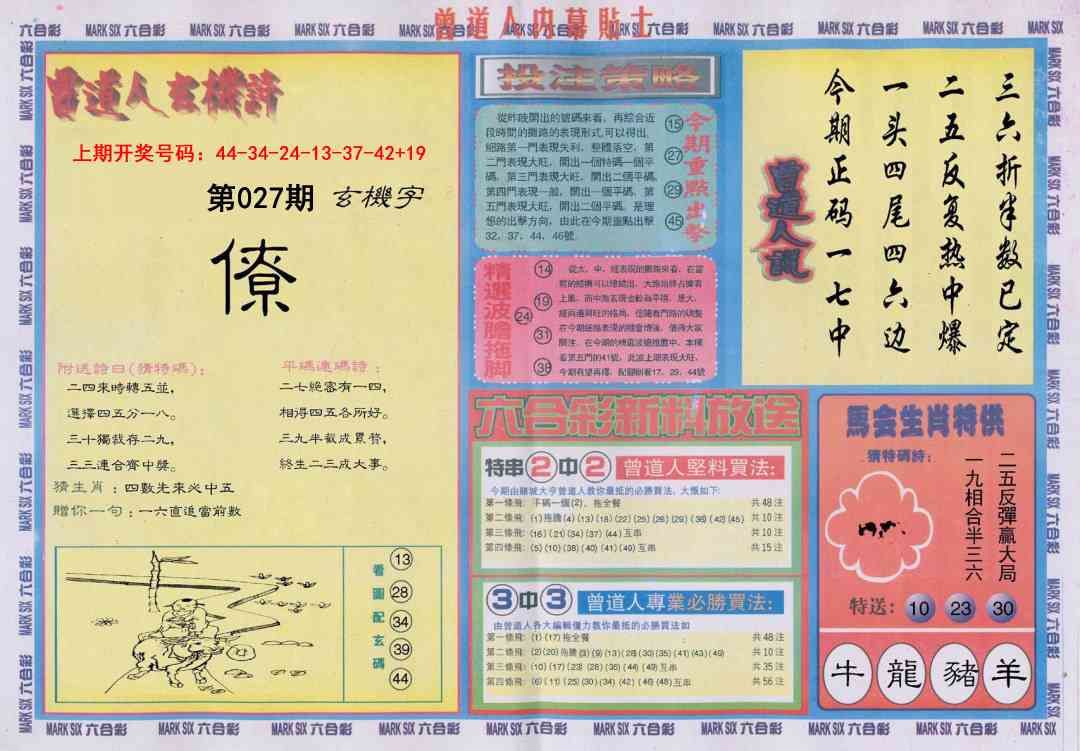 曾道人内幕貼士
六合彩 MARK SIX 六合彩 MARK SIX 六合彩 MARK SIX 六合彩 MARK SIX 六合彩 MARK SIX 六合彩 MARK SIX 六合彩 MARK SIX 六合彩 MARK SIX 六合彩 MARK SIX
曾道人玄機詩
上期开奖号码：44-34-24-13-37-42+19
第027期 玄機字
僚
附送詩曰(猜特碼)：
二四來時轉五並，
選擇四五分一八。
三十獨裁存二九，
三三連合齊中獎。
平碼連碼詩：
二七絕密有一四，
相得四五各所好。
三九半截成累贅，
終生二三成大事。
猜生肖：四數先來必中五
贈你一句：一六直追當前數
看圖配玄碼
13
28
34
39
44
投注策略
從昨晚開出的號碼來看，再綜合近
段時間的攤路的表現形式，可以得出，
細路第一門表現失利，整體落空，第
二門表現大旺，開出一個特碼一個平
碼，第三門表現大旺，開出二個平碼，
第四門表現一般，開出一個平碼，第
五門表現大旺，開出二個平碼，是理
想的出擊方向，由此在今期重點出擊
32，37，44，46號．
今期重點出擊
15
27
29
45
精選波膽拖脚
14
19
24
31
38
今期有望再得，配腳則看17、29、44號
曾道人說
三六折半数已定
二五反复热中爆
一头四尾四六边
今期正码一七中
六合彩新料放送
特串2中2 曾道人堅料買法：
今期由賭城大亨曾道人教你最抵的必勝買法，大概如下：
第一條飛：平碼一個(2)，拖全餐 共48注
第二條飛：(1)拖膽(4)(13)(18)(22)(25)(26)(29)(36)(42)(45) 共10注
第三條飛：(16)(21)(34)(37)(44)互串 共10注
第四條飛：(5)(10)(38)(40)(41)(49)互串 共15注
3中3 曾道人專業必勝買法：
由曾道人各大編輯僅力教你最抵的必勝買法如
第一條飛：(1)(17)拖全餐 共48注
第二條飛：(2)(20)拖膽(3)(9)(13)(28)(30)(35)(41)(43)(49) 共10注
第三條飛：(10)(17)(23)(28)(36)(44)(49)互串 共35注
第四條飛：(6)(11)(25)(30)(34)(42)(46)(48)互串 共56注
馬会生肖特供
猜特碼詩：
二五反彈贏大局
一九相合半三六
特送：10 23 30
牛 龍 豬 羊
MARK SIX 六合彩 MARK SIX 六合彩 MARK SIX 六合彩 MARK SIX 六合彩 MARK SIX 六合彩 MARK SIX 六合彩 MARK SIX 六合彩 MARK SIX 六合彩 MARK SIX